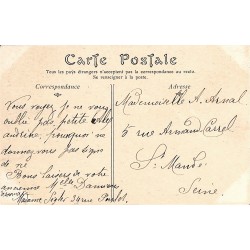 Carte Postale
Tous les pays étrangers n'acceptent pas la correspondance au recto.
Se renseigner à la poste.
Correspondance
Adresse
Vous voyez je ne vous
oublie pas, petite
pourquoi ne
donnez vous pas signe
de vie
Bons baisers de votre
ancienne
Madame 34 rue
Mademoiselle A. Arnal
5 rue Armand Carrel
St Mandé
Seine